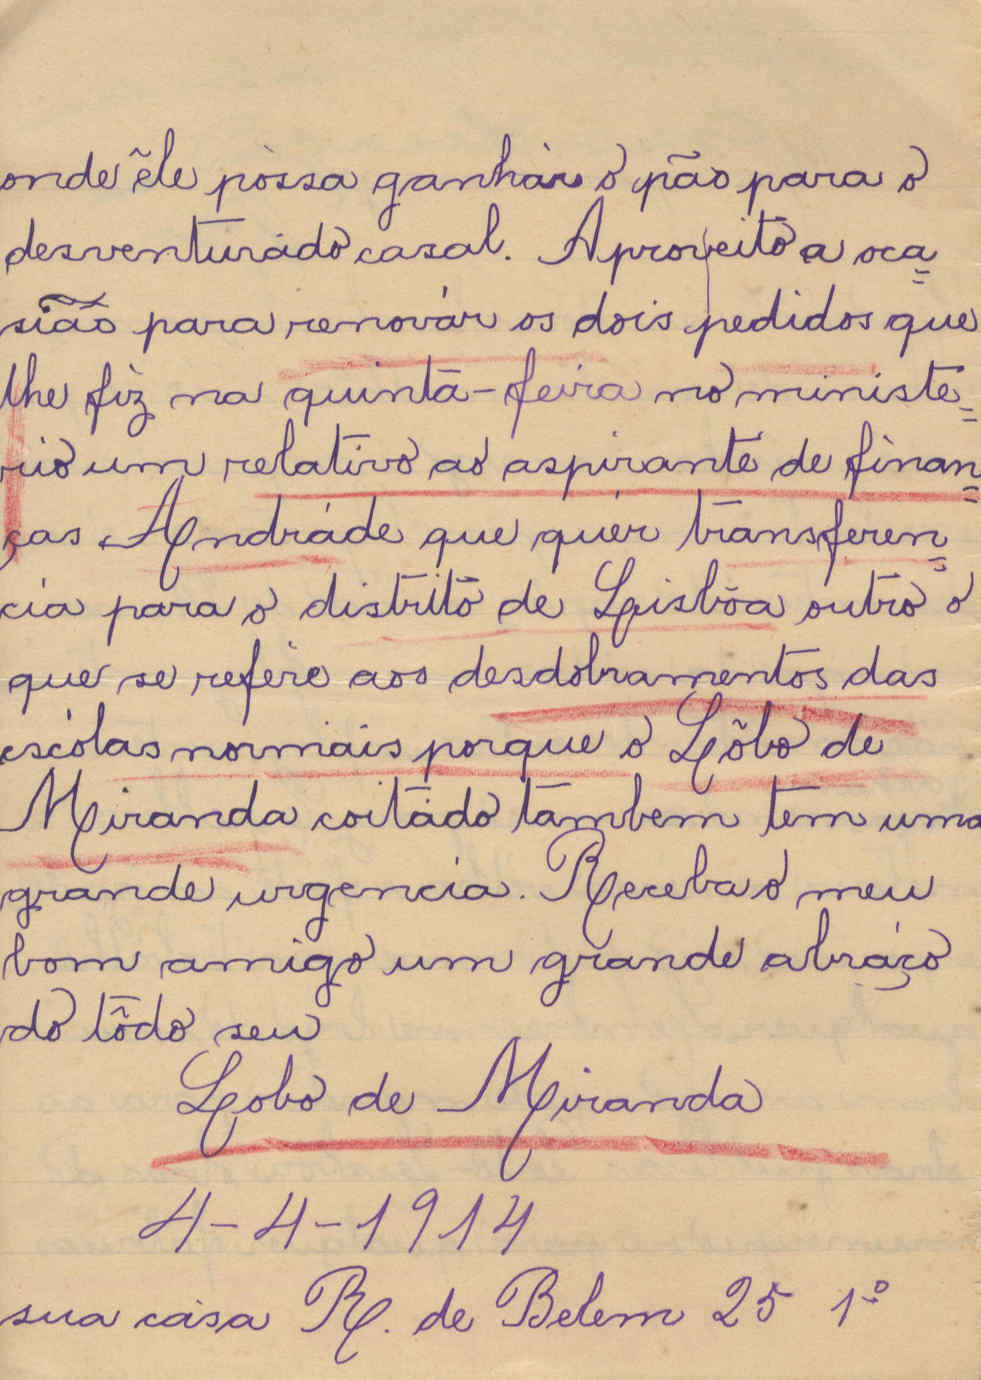 onde êle póssa ganhár o pão para o
desventurádo casal. Aproveito a oca=
sião para renovár os dois pedidos que
lhe fiz na quinta-feira no ministe=
rio um relativo ao aspirante de finan=
ças Andráde que quér transferen=
cia para o distrito de Lisbôa outro o
que se refére aos desdobramentos das
escólas normais porque o Lôbo de
Miranda coitádo tambem tem uma
grande urgencia. Receba o meu
bom amigo um grande abráço
do tôdo seu
Lobo de Miranda
4-4-1914
sua casa R. de Belem 25 1º